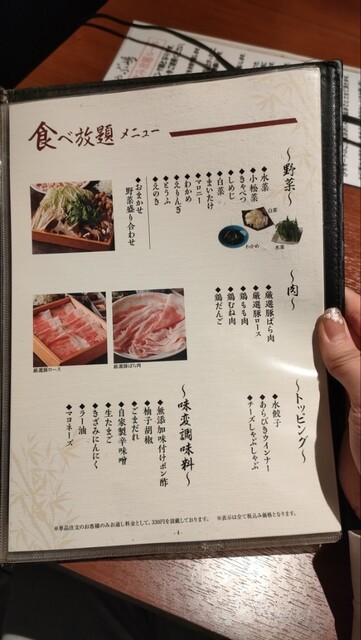 食べ放題 メニュー
〜野菜〜
◆水菜
◆小松菜
◆きゃべつ
◆しめじ
◆白菜
◆まいたけ
◆マロニー
◆わかめ
◆えりんぎ
◆とうふ
◆えのき
◆おまかせ
野菜盛り合わせ
白菜
わかめ
水菜
〜肉〜
◆厳選豚ばら肉
◆厳選豚ロース
◆鶏もも肉
◆鶏むね肉
◆鶏だんご
厳選豚ロース
厳選豚ばら肉
〜トッピング〜
◆水餃子
◆あらびきウインナー
◆チーズしゃぶしゃぶ
〜味変調味料〜
◆無添加味付けポン酢
◆柚子胡椒
◆ごまだれ
◆自家製辛味噌
◆生たまご
◆きざみにんにく
◆ラー油
◆マヨネーズ
※単品注文のお客様のみお通し料金として、330円を頂戴しております。 ※表示は全て税込み価格となります。
- 4 -